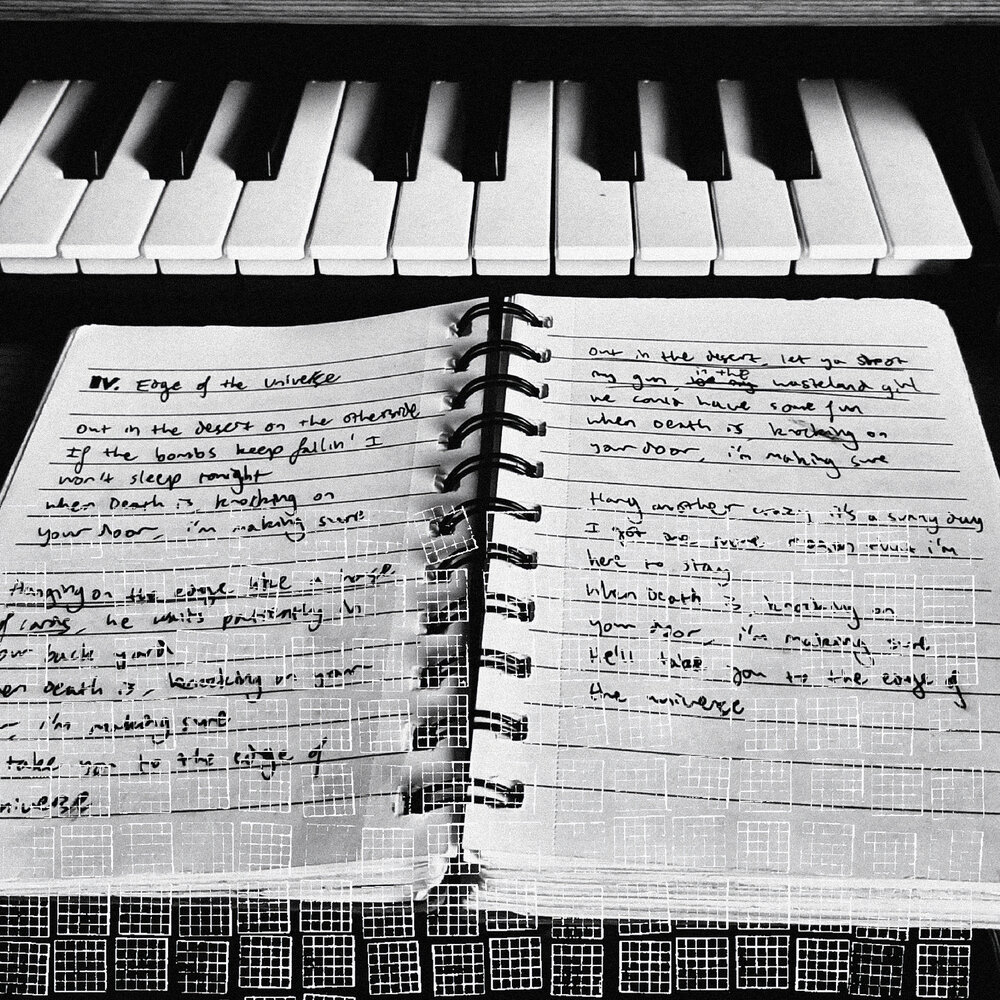 IV. Edge of the Universe
out in the desert on the otherside
If the bombs keep fallin' I
won't sleep tonight
when Death is, knocking on
your door, i'm making sure
Hanging on the edge like a house
of cards, he waits patiently in
our back yard
en Death is, knocking on your
i'm making sure
take you to the edge of
niverse
out in the desert, let ya shoot
my gun, in the wasteland girl
we could have some fun
when Death is, knocking on
your door, i'm making sure
Hang another it's a sunny day
I got i'm
here to stay
When Death is, knocking on
your door, i'm making sure
He'll take you to the edge of
the universe